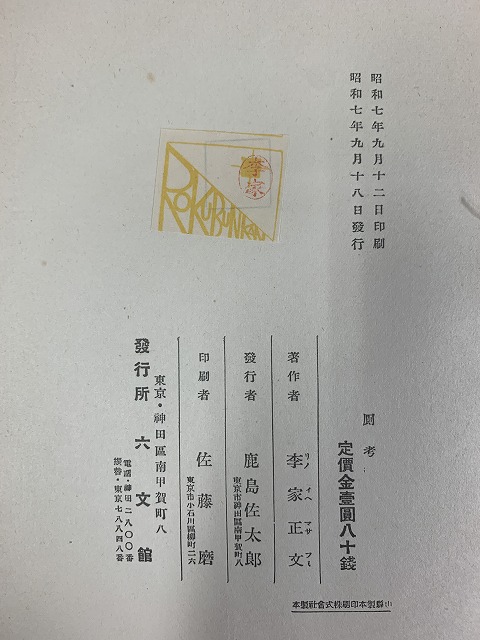 昭和七年九月十二日印刷
昭和七年九月十八日發行
ROKUBUNKAN
李家
定價金壹圓八十錢
著作者 李家正文
リノイヘマサフミ
發行者 鹿島佐太郎
東京市神田區南甲賀町八
印刷者 佐藤磨
東京市小石川區柳町二六
東京・神田區南甲賀町八
發行所 六文館
電話・神田二八〇〇番
振替・東京七八八四八番
山縣製本印刷株式會社製本